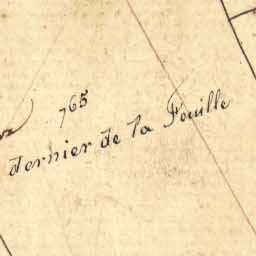 765
dernier de la Feuille